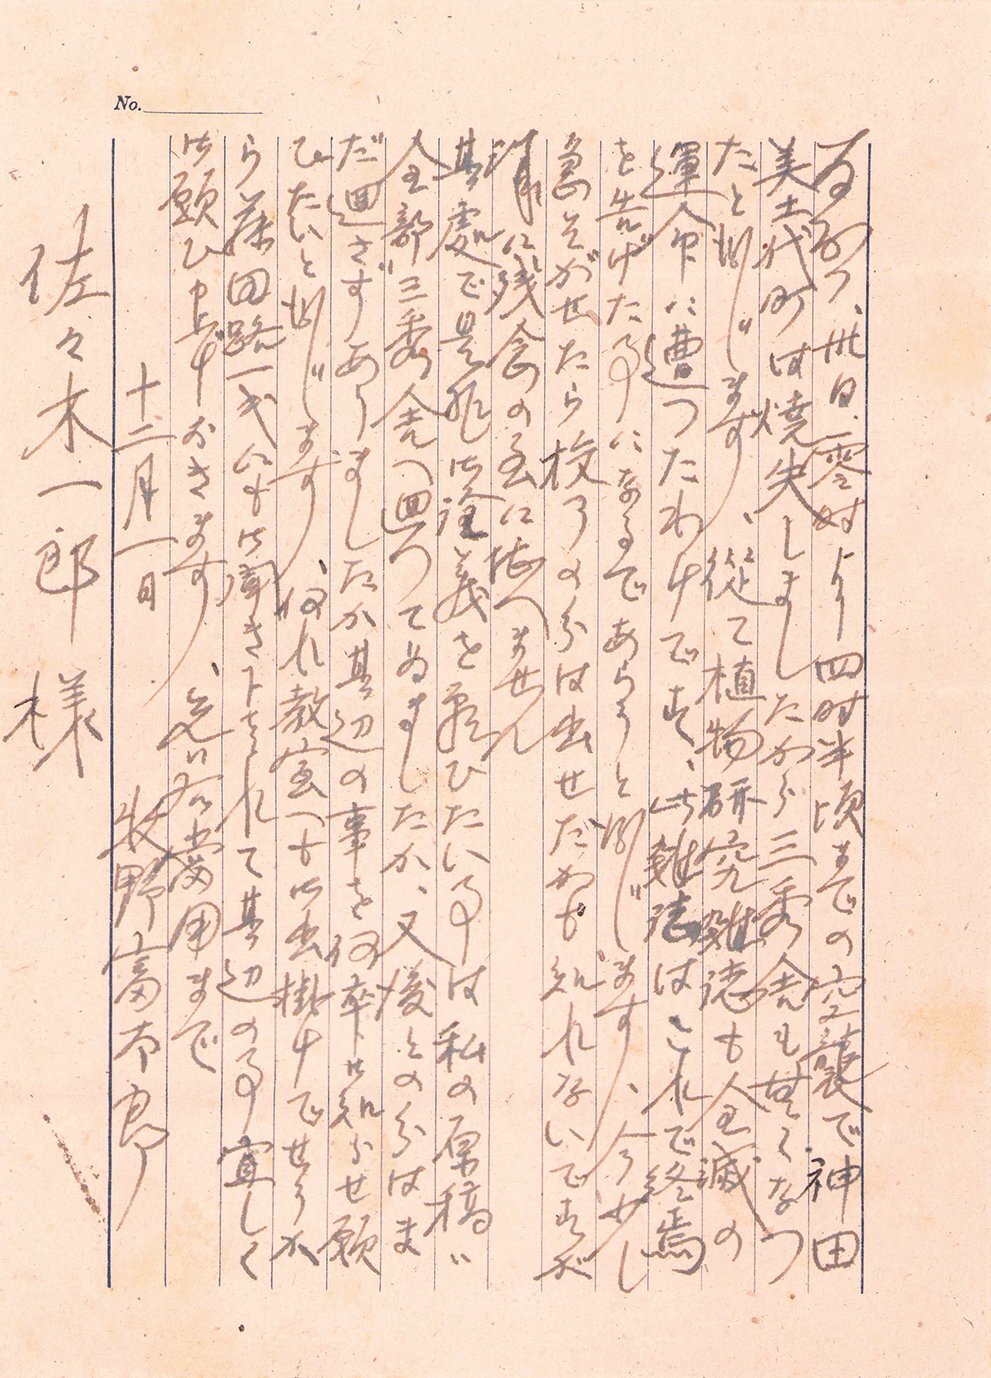 No.
卅日零時より四時半頃までの空襲で神田
美土代町は焼失しましたから三秀舎も無くなつ
たと存じます、従て植物研究雑誌も全滅の
運命に遭つたわけです、此雑誌はこれで終焉
を告げた事になるであらうと存じます、今少し
急そがせたら校了の分は出せたかも知れないですが
実に残念の至に堪へません
其処で是非御詮義を願ひたい事は私の原稿が
全部三秀舎へ廻つてゐましたか、又後との分はま
だ廻さずありましたか其辺の事を何卒御知らせ願
ひたいと存じます、何れ教室へも御出掛けでせうか
ら藤田路一氏にも御聞き下されて其辺の事宜しく
御願ひ申上げおきます、先は右当用まで
十二月一日
牧野富太郎
佐々木一郎様